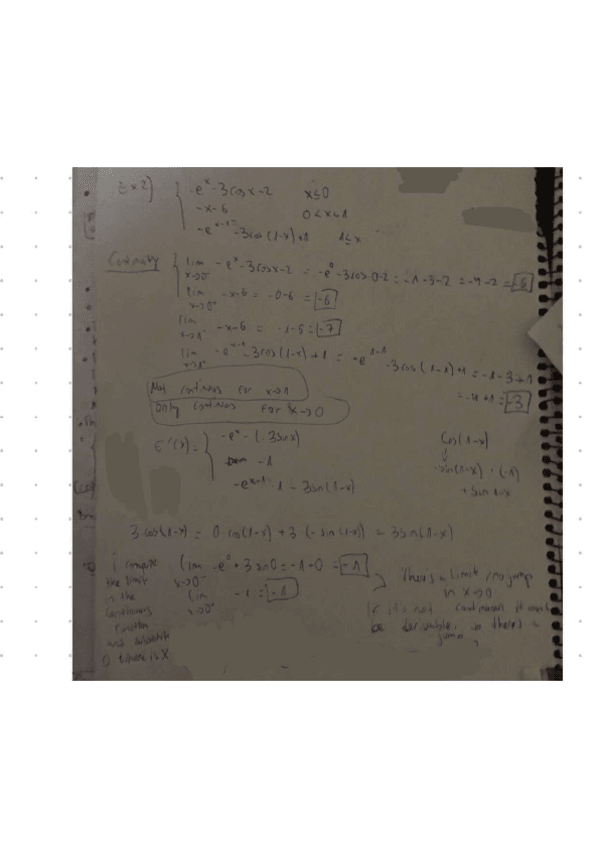 Ex 2)
-e^x - 3cosx - 2 x≤0
-x-6 0<x<1
-e^{x-1} - 3cos(1-x)+1 1≤x
lim x→0⁻ -e^x - 3cosx - 2 = -e^0 - 3cos0 - 2 = -1-3-2 = -4-2 = -6
lim x→0⁺ -x-6 = -0-6 = -6
lim x→1⁻ -x-6 = -1-6 = -7
lim -e^{x-1} - 3cos(1-x)+1 = -e^{1-1} - 3cos(1-1)+1 = -1-3+1
= -4+1 = -3
Not continuos for x→1
Only continuos for x→0
-e^x - (-3sinx)
-1
-e^{x-1} · 1 - 3sin(1-x)
Cos(1-x)
↓
-sin(1-x) · (-1)
+ sin 1-x
3·cos(1-x) = 0·cos(1-x) + 3(-sin(1-x)) = 3sin(1-x)
i compute
the limit
in the
continuous
function
and substitute
0 where is X
lim x→0⁻ -e^0 + 3 sin0 = -1+0 = -1
lim x→0⁺ -1 = -1
There's a limit / no jump
in x→0
If it's not continuous it cant
be derivable, is there's a
jump